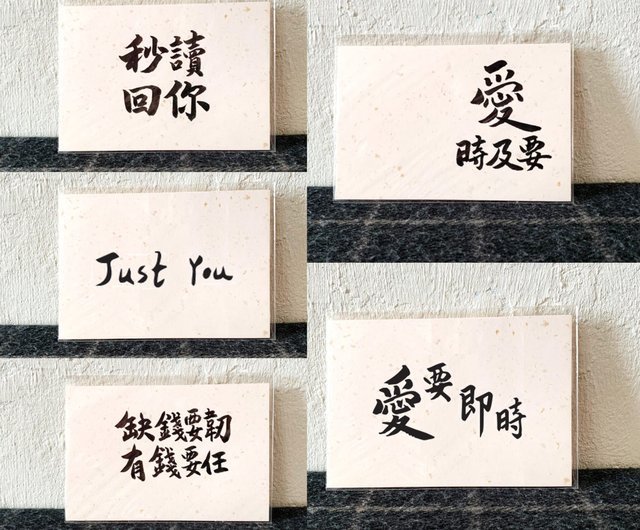 秒讀
回你
Just You
缺錢要韌
有錢要任
愛
時及要
愛要即時